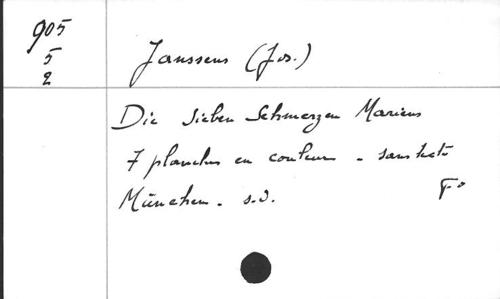 905
5
2
Janssens (Jos.)
Die sieben Schmerzen Mariens
7 planches en couleurs - sans texte
München - s.d.
F°